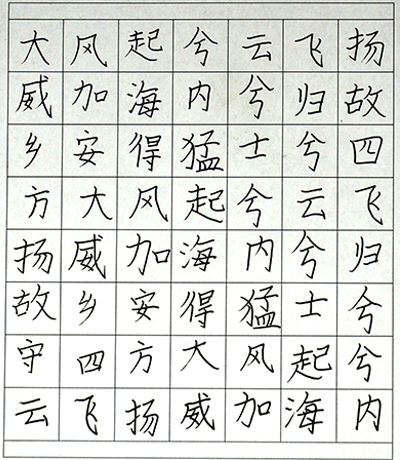 大风起兮云飞扬
威加海内兮归故
乡安得猛士兮四
方大风起兮云飞
扬威加海内兮归
故乡安得猛士兮
守四方大风起兮
云飞扬威加海内